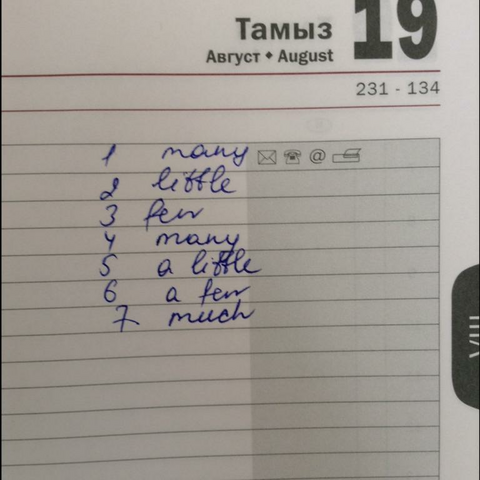 Тамыз 19
Август • August
231 - 134
1 many @
2 little
3 few
4 many
5 a little
6 a few
7 much
VIII